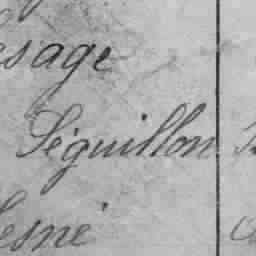 esage
Séguillon
esné